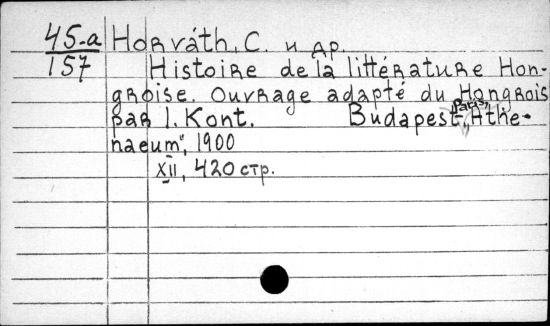 45-a Horváth, C. и др.
157 Histoire de la littérature Hon-
groise. Ouvrage adapté du Hongrois
par I. Kont. Budapest-Paris, „Athe-
naeum", 1900
XII, 420 стр.